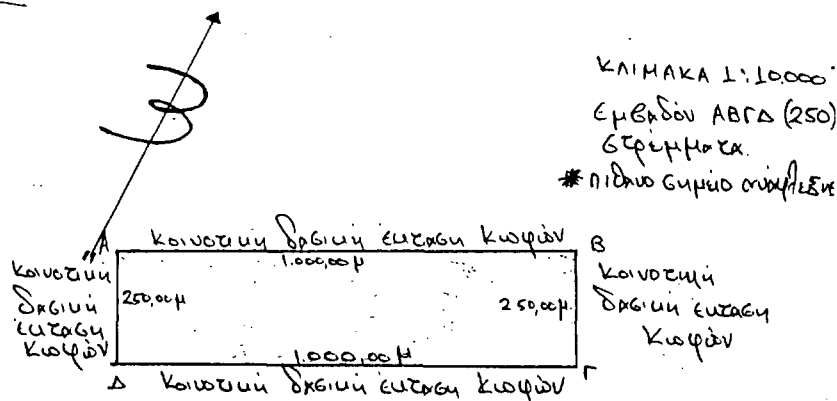 ΚΛΙΜΑΚΑ 1:10.000
Εμβαδόν ΑΒΓΔ (250)
στρέμματα.
* πιθανό σημείο ανάφλεξης
Α Κοινοτική δασική έκταση Κωφών Β
1.000,00μ
Κοινοτική
δασική
έκταση
Κωφών
250,00μ
250,00μ
Κοινοτική
δασική έκταση
Κωφών
1.000,00μ
Δ Κοινοτική δασική έκταση Κωφών Γ